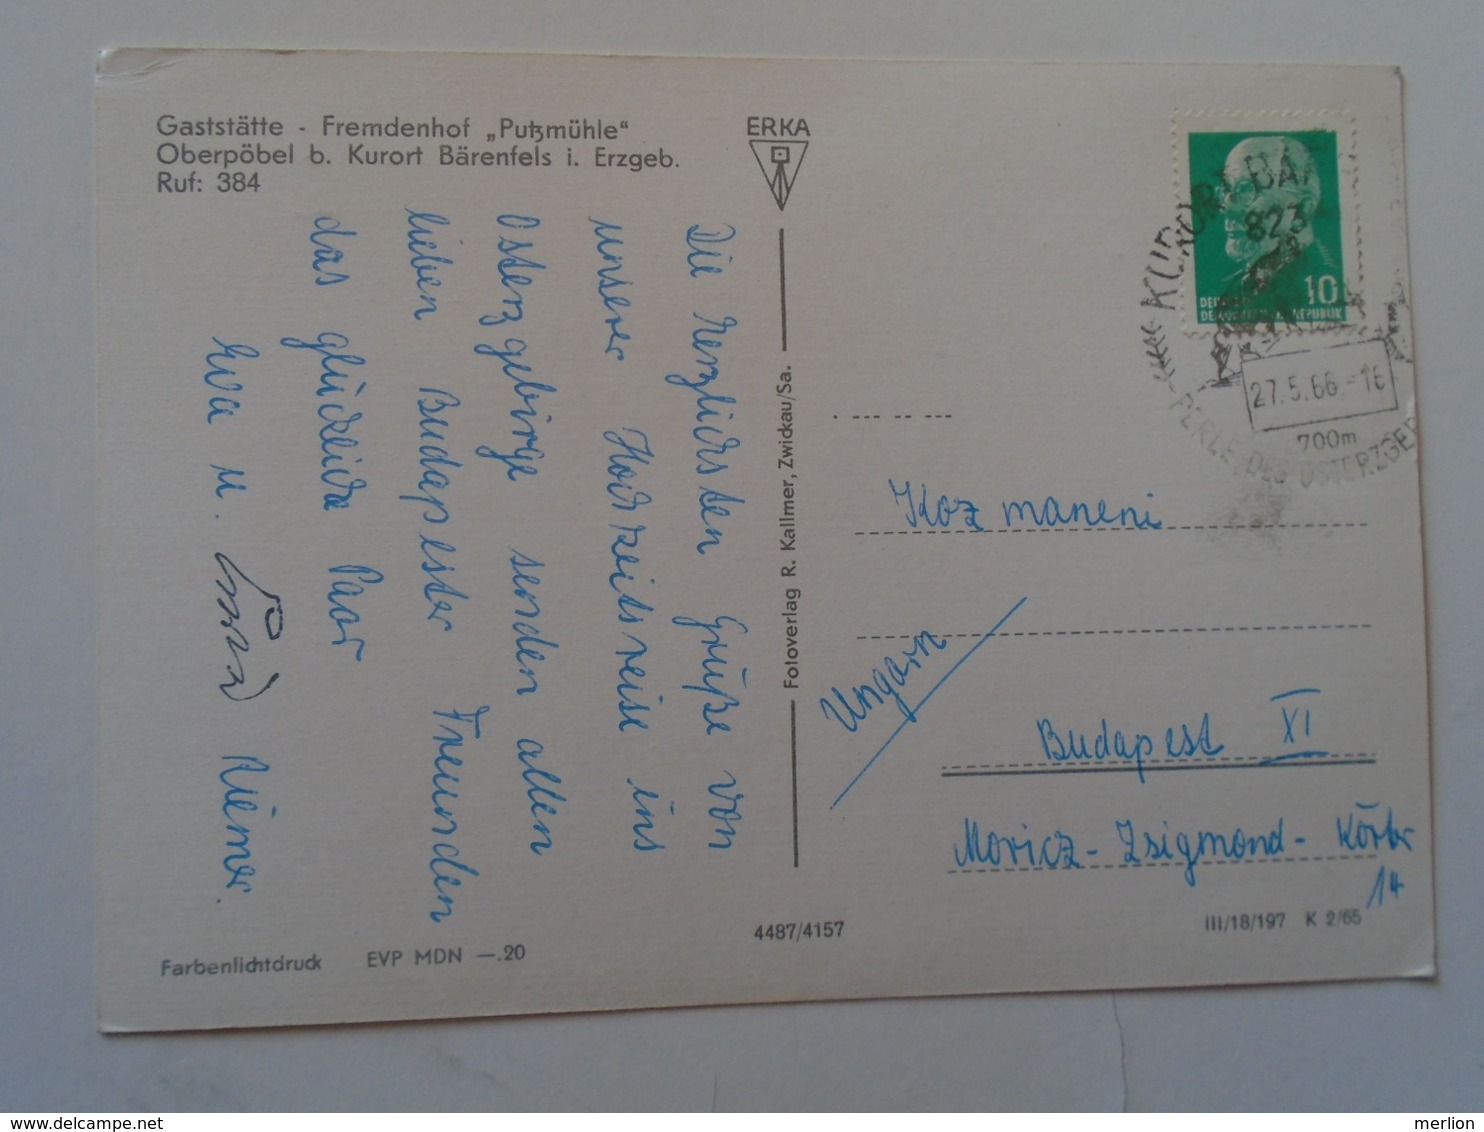 Gaststätte - Fremdenhof „Putzmühle“
Oberpöbel b. Kurort Bärenfels i. Erzgeb.
Ruf: 384
ERKA
Die herzlichsten Grüße von
unserer Hochzeitsreise ins
Osterzgebirge senden allen
lieben Budapester Freunden
das glückliche Paar
Eva u.
Riemer.
Fotoverlag R. Kallmer, Zwickau/Sa.
KURORT BÄ
823
10
DEMOKRATISCHE REPUBLIK
27.5.66.-16
700m
PERLE DES OSTERZGEB
Kozmaneni
Ungarn
Budapest XI
Moricz-Zsigmond-Körtr
14
4487/4157
III/18/197 K 2/65
Farbenlichtdruck EVP MDN —.20
www.delcampe.net
merlion